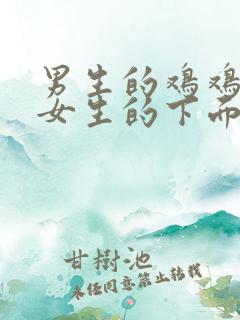 男生的鸡鸡
女生的下面
甘樹池
未经同意禁止转载